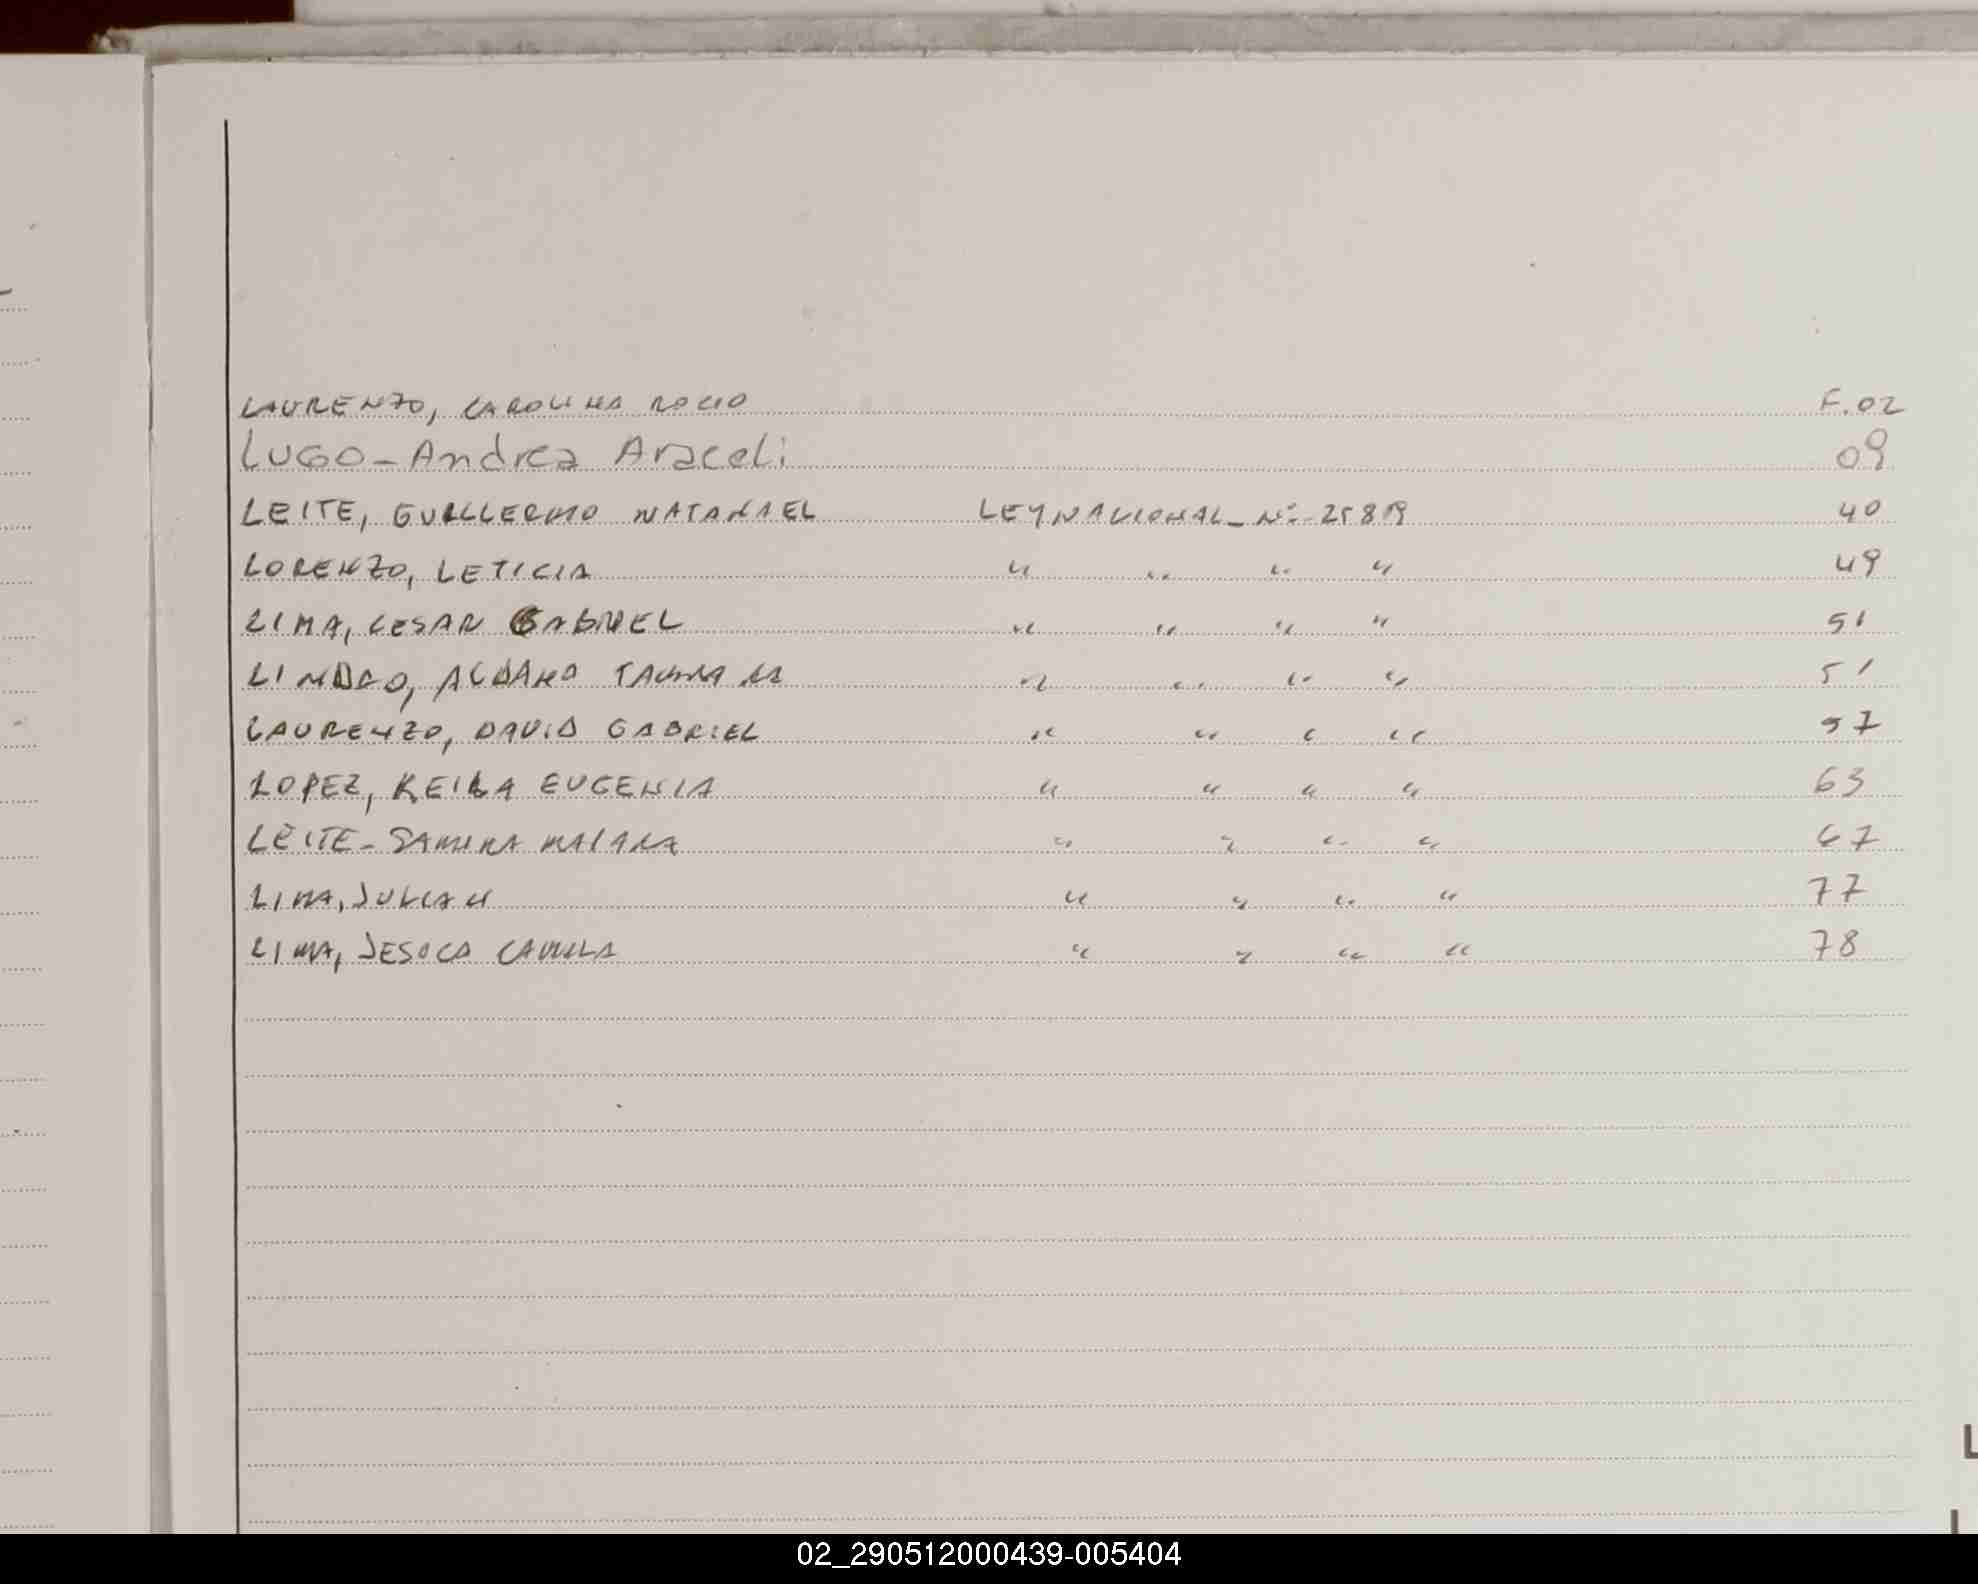 LAURENZO, CAROLINA ROCIO F.02
LUGO - Andrea Araceli 09
LEITE, GUILLERMO NATANAEL LEY NACIONAL - Nº- 25819 40
LORENZO, LETICIA " " " " 49
LIMA, CESAR GABRIEL " " " " 51
ALDANA TAMARA " " " " 51
LAURENZO, DAVID GABRIEL " " " " 57
LOPEZ, KEILA EUGENIA " " " " 63
LEITE - SAMIRA " " " " 67
LIMA, JULIAN " " " " 77
LIMA, CAMILA " " " " 78
L
L
02_290512000439-005404